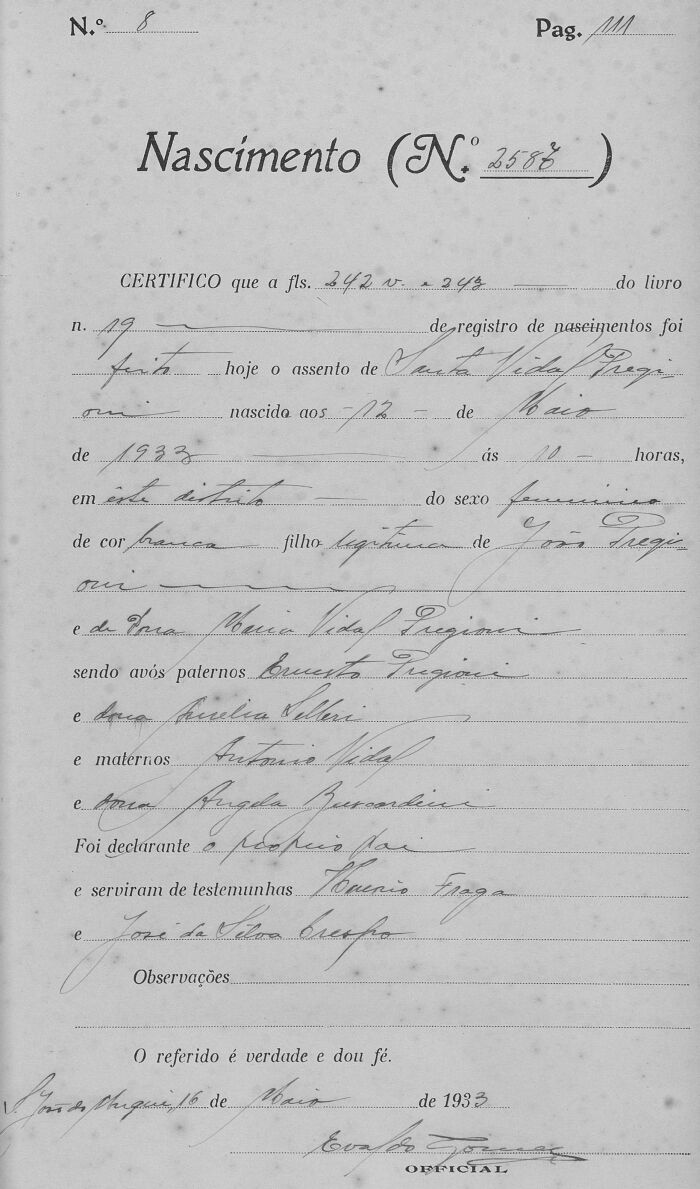 N.º 8 Pag. 111
Nascimento (N.º 2587)
CERTIFICO que a fls. 242 v. e 243 do livro
n. 19 de registro de nascimentos foi
feito hoje o assento de Santa Vidal Pregi-
oni nascida aos -12- de Maio
de 1933 ás 10 - horas,
em este distrito do sexo feminino
de cor branca filho legitima de João Pregi-
oni
e de Dona Maria Vidal Pregioni
sendo avós paternos Ernesto Prigioni
e dona Aurelia
e maternos Antonio Vidal
e dona Angela
Foi declarante o proprio pai
e serviram de testemunhas Fraga
e José da Silva Crespo
Observações
O referido é verdade e dou fé.
S. João do Muqui, 16 de Maio de 1933
Evaldo Gomes
OFFICIAL